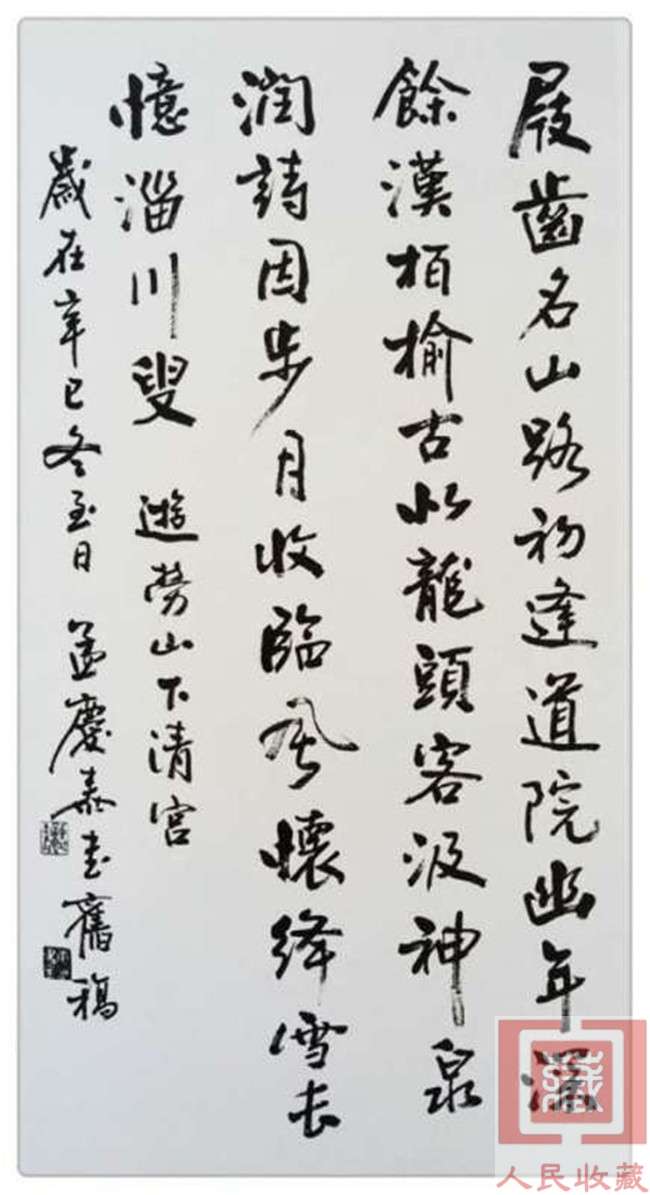 屐齒名山路初逢道院幽年深
餘漢栢榆古似龍頭客汲神泉
潤詩因步月收臨風懷絳雪長
憶淄川叟 遊勞山下清宮
歲在辛巳冬至日 孟慶泰書舊稿
人民收藏